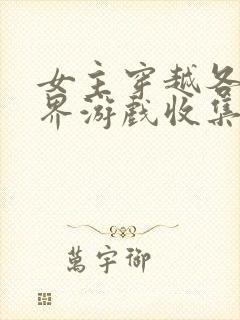 女主穿越各
界游戏收集
萬宇御